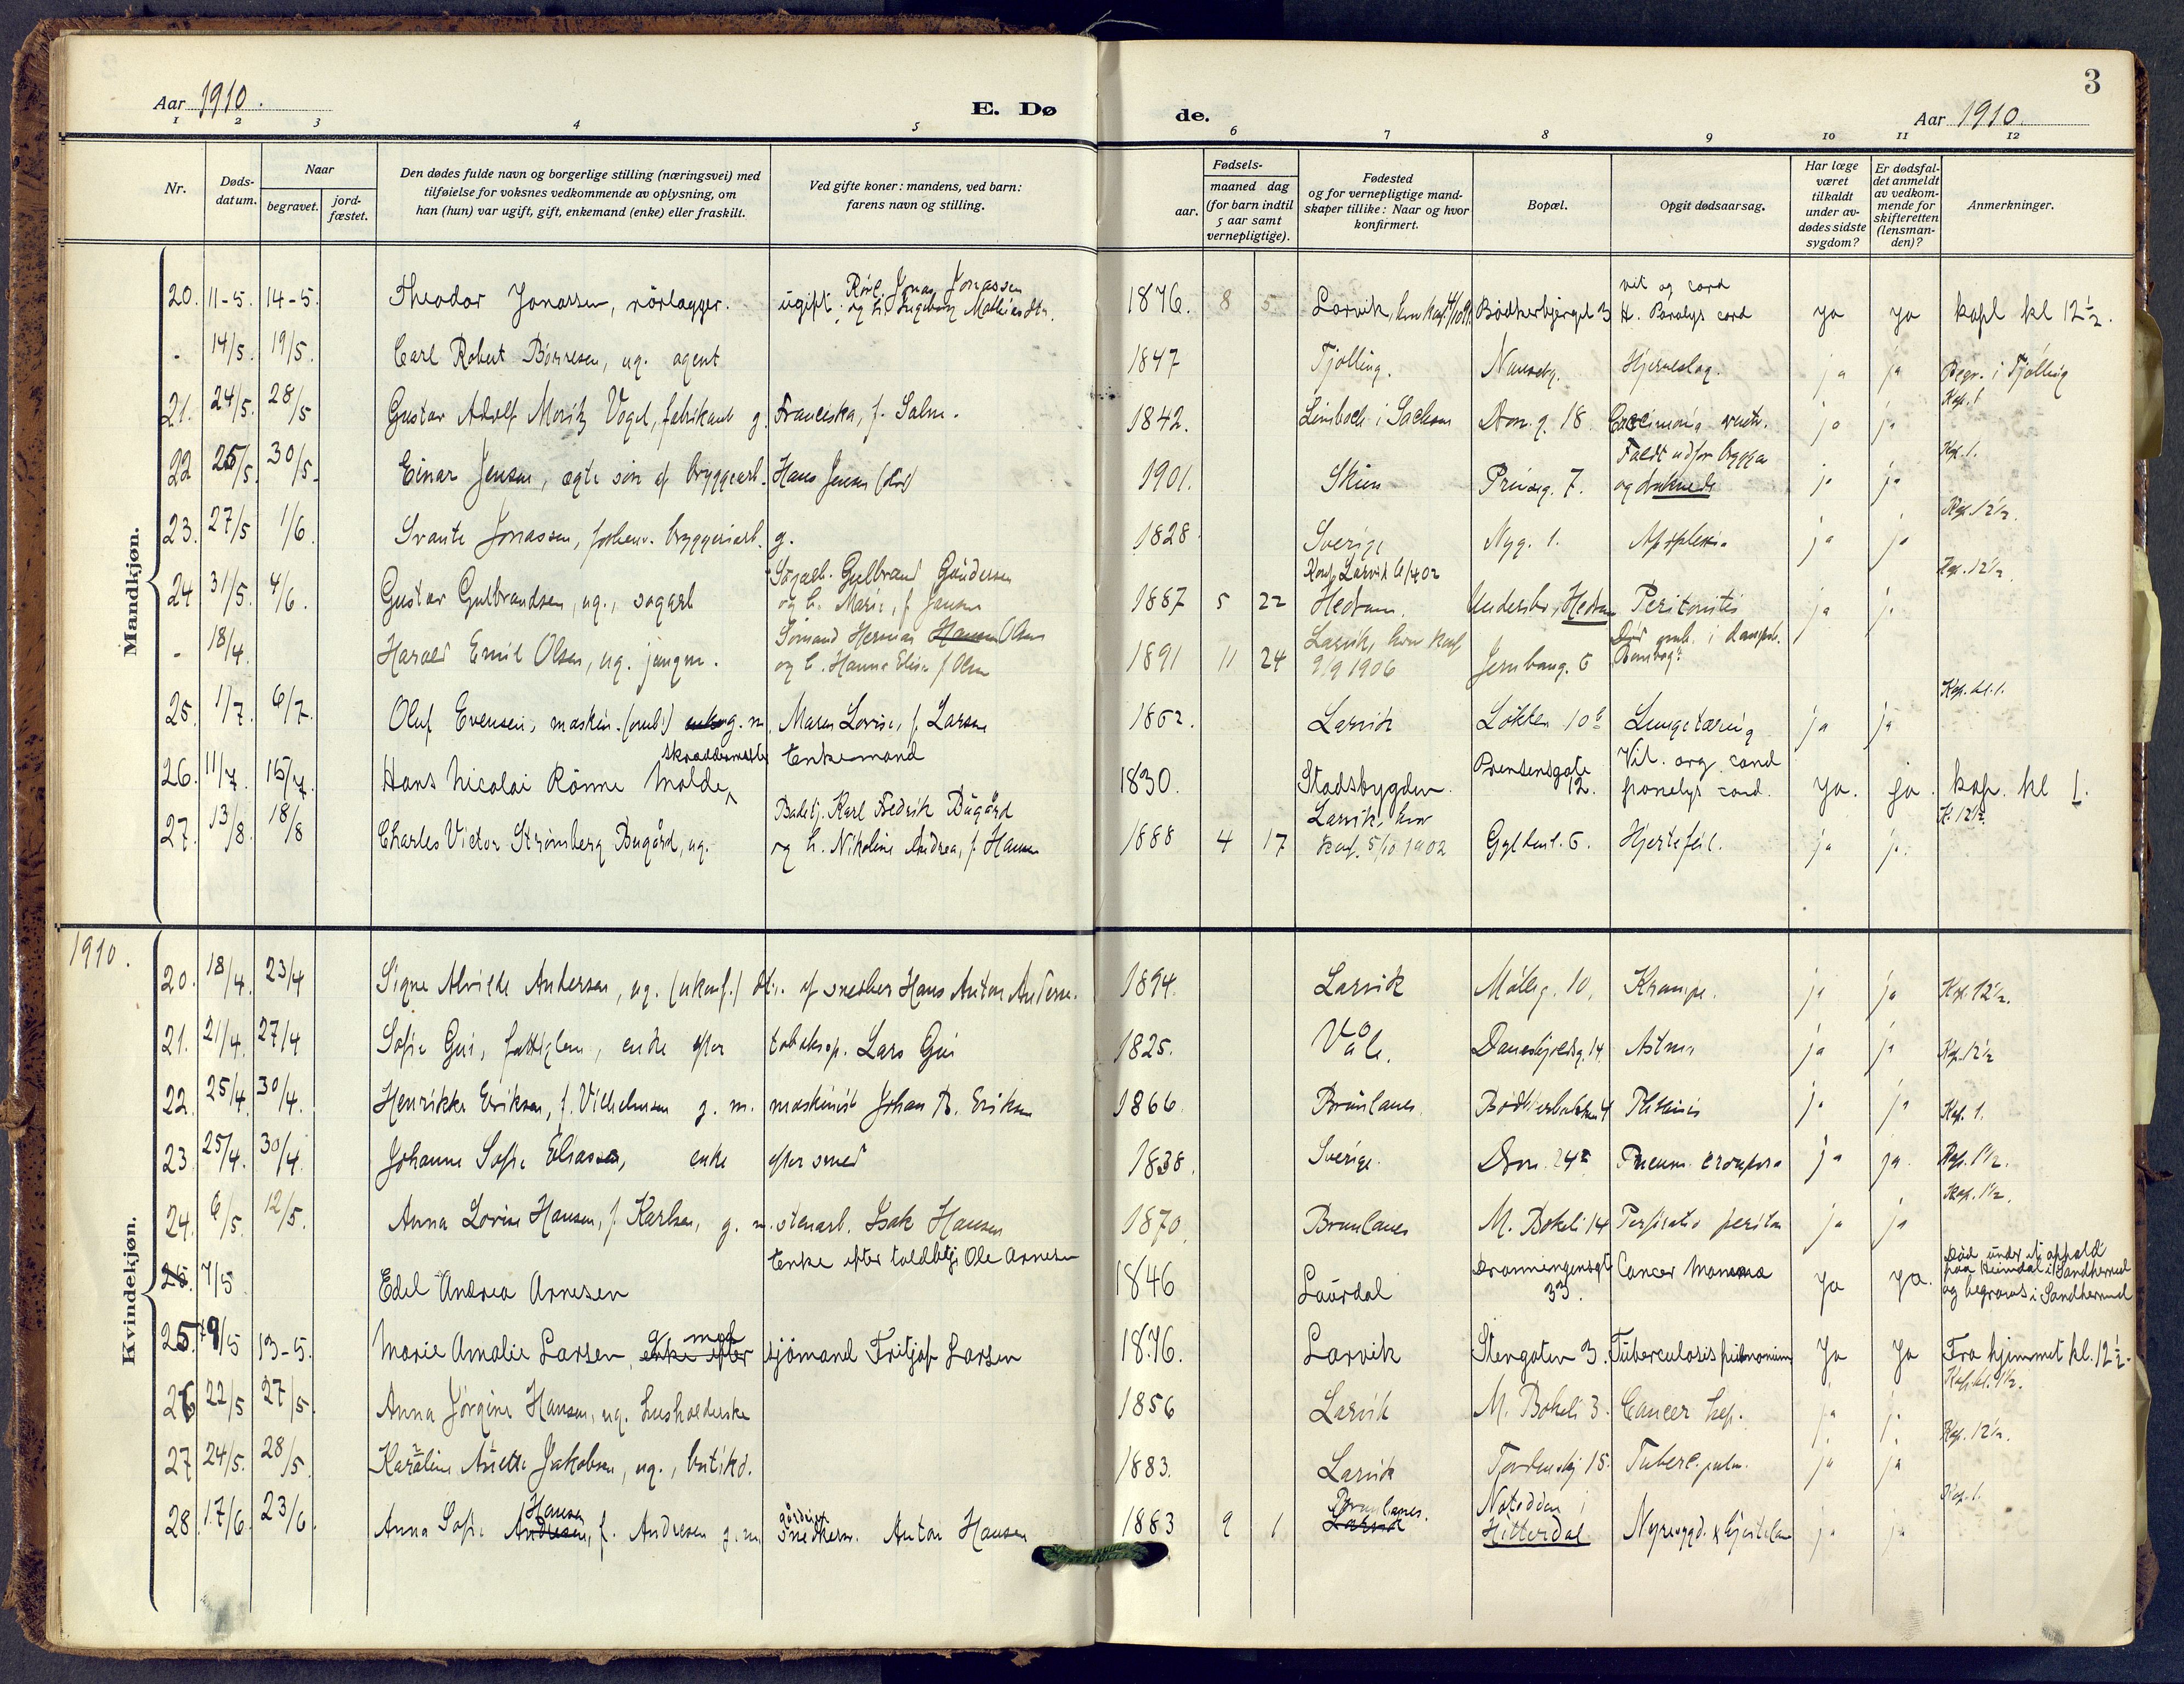 Aar 1910.
E. Dø
de.
Aar 1910.
3
1 2 3 4 5 6 7 8 9 10 11 12
Nr.
Døds-
datum.
Naar
begravet.
jord-
fæstet.
Den dødes fulde navn og borgerlige stilling (næringsvei) med
tilføielse for voksnes vedkommende av oplysning, om
han (hun) var ugift, gift, enkemand (enke) eller fraskilt.
Ved gifte koner: mandens, ved barn:
farens navn og stilling.
Fødsels-
aar.
maaned dag
(for barn indtil
5 aar samt
vernepligtige).
Fødested
og for vernepligtige mand-
skaper tillike: Naar og hvor
konfirmert.
Bopæl.
Opgit dødsaarsag.
Har læge
været
tilkaldt
under av-
dødes sidste
sygdom?
Er dødsfal-
det anmeldt
av vedkom-
mende for
skifteretten
(lensman-
den)?
Anmerkninger.
Mandkjøn.
20. 11-5. 14-5. Theodor Jonassen, rörlægger. ugift. Rörl. Jonas Jonassen
og h. Ingeborg 1876. 8 5 Larvik, Bødkerbjerget 3 vit og cord
H. Paralys cord ja ja kapl kl 12½.
- 14/5. 19/5. Carl Robert Børresen, ug. agent 1847 Tjølling. Hjerneslag. ja ja Begr. i Tjølling
21. 24/5. 28/5 Gustav Adolf Moritz Vogel, fabrikant g. Franciska, f. Salm. 1842. Limbach i Sachsen Dron. g. 18. ventr. ja ja Kap. 1
22 25/5. 30/5. Einar Jensen, ægte søn af bryggearb. Hans Jensen 1901. Skien Prinseg. 7. Faldt udfor brygga
og druknede ja ja Kap. 1.
23. 27/5 1/6. Svante Jonassen, forhenv. bryggeriarb. g. 1828 Sverige Nyg. 1. Apoplexia ja ja Kap. 12½.
24 31/5. 4/6. Gustav Gulbrandsen, ug., sagarb Sagarb. Gulbrand Gundersen
og h. Marie, f. Jansen 1887 5 22 Konf. Larvik
Hedrum. Hedrum Peritonitis ja ja Kap. 12½.
- 18/4. Harald Emil Olsen, ug. jungm. Sømand Herman Hansen Olsen
og h. Hanna Elise f. Olsen 1891 11 24 Larvik, hvor konf.
9/9 1906 Jernbaneg. 6
25. 1/7. 6/7. Oluf Evensen, maskin. g. m. Maren Lovise, f. Larsen 1862. Larvik Løkken 10b Lungetæring ja ja Kap. kl. 1.
26. 11/7. 15/7. Hans Nicolai Rönne Molde, skræddermester Enkemand 1830. Stadsbygden. Prinsensgate
12. Vit. org. cord
paralys cord. ja. ja. kap. kl 1.
27. 13/8. 18/8 Charles Victor Strømberg Bugård, ug. Badetj. Karl Fredrik Bugård
og h. Nikoline Andrea, f. Hansen 1888 4 17 Larvik, hvor
konf. 5/10 1902 Gyldenl. 6. Hjertefeil. ja ja. K. 12½.
1910.
Kvindekjøn.
20. 18/4. 23/4 Signe Alvilde Andersen, ug. (ukonf.) dtr. af snedker Hans Anton Andersen. 1894. Larvik Mølleg. 10, Krampe. ja ja Kap. 12½.
21. 21/4. 27/4 Sofie Gui, fattiglem, enke efter tobaksop. Lars Gui 1825. Våle. Daneskjoldsg. 14 Astma ja ja Kap. 12½
22. 25/4. 30/4. Henrikke Eriksen, f. Vilhelmsen g. m. maskinist Johan B. Eriksen 1866. Brunlanes Bødkerbakken 4 Phtisis ja ja Kap. 1.
23. 25/4. 30/4. Johanne Sofie Eliassen, enke efter smed 1838. Sverige. Dron. 24a Pneum. crouposa ja ja. Kap. 1½.
24. 6/5. 12/5. Anna Lovise Hansen, f. Karlsen, g. m. stenarb. Isak Hansen 1870. Brunlanes M. Bøkeli 14 ja ja Kap. 1½.
25. 7/5 Edel Andrea Arnesen Enke efter toldbetj. Ole Arnesen 1846 Laurdal Dronningensgt
33. Cancer Mamma ja ja. Død under et ophold
paa Heimdal i Sandherred
og begraves i Sandherred
25. 9/5 13-5. Marie Amalie Larsen, enke efter g. med sjömand Fritjof Larsen 1876. Larvik Stengaten 3. Tuberculosis pulmonum ja ja Fra hjemmet kl. 12½.
26 22/5 27/5. Anna Jørgine Hansen, ug. husholderske 1856 Larvik M. Bøkeli 3. Cancer hep. ja ja Kap. kl. 1½.
27 24/5. 28/5. Karoline Anette Jakobsen, ug., butikd. 1883. Larvik Tordenskj 15. Tuberc. pulm. ja ja Kap. 12½.
28. 17/6. 23/6. Anna Sofie Andresen, Hansen f. Andresen g. m. snedkerm. gårdeier Anton Hansen 1883 9 1 Larvik Brunlanes. Notodden i
Hitterdal Nyresygd. & hjertelam. ja ja Kap. 1.